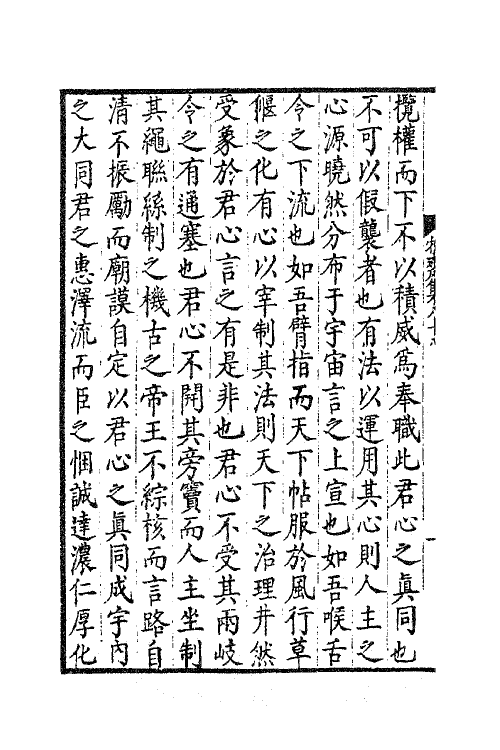 攬權而下不以積威爲奉職此君心之眞同也
不可以假襲者也有法以運用其心則人主之
心源曉然分布于宇宙言之上宣也如吾喉舌
令之下流也如吾臂指而天下帖服於風行草
偃之化有心以宰制其法則天下之治理井然
受象於君心言之有是非也君心不受其兩岐
令之有通塞也君心不開其旁竇而人主坐制
其繩聯絲制之機古之帝王不綜核而言路自
清不振勵而廟謨自定以君心之眞同成宇內
之大同君之惠澤流而臣之悃誠達濃仁厚化